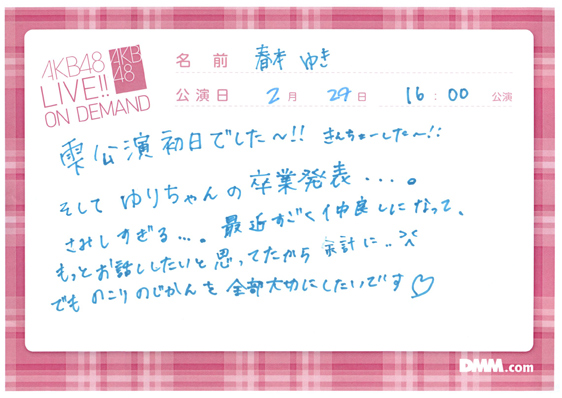 AKB48
LIVE!!
ON DEMAND
AKB
48
名前 春本 ゆき
公演日 2月 29日 16:00 公演
雫公演初日でした〜!! きんちょーした〜!!
そして ゆりちゃんの卒業発表...。
さみしすぎる...。最近すごく仲良しになって、
もっとお話ししたいと思ってたから 余計に..><
でも のこりのじかんを 全部大切にしたいです♡
DMM.com